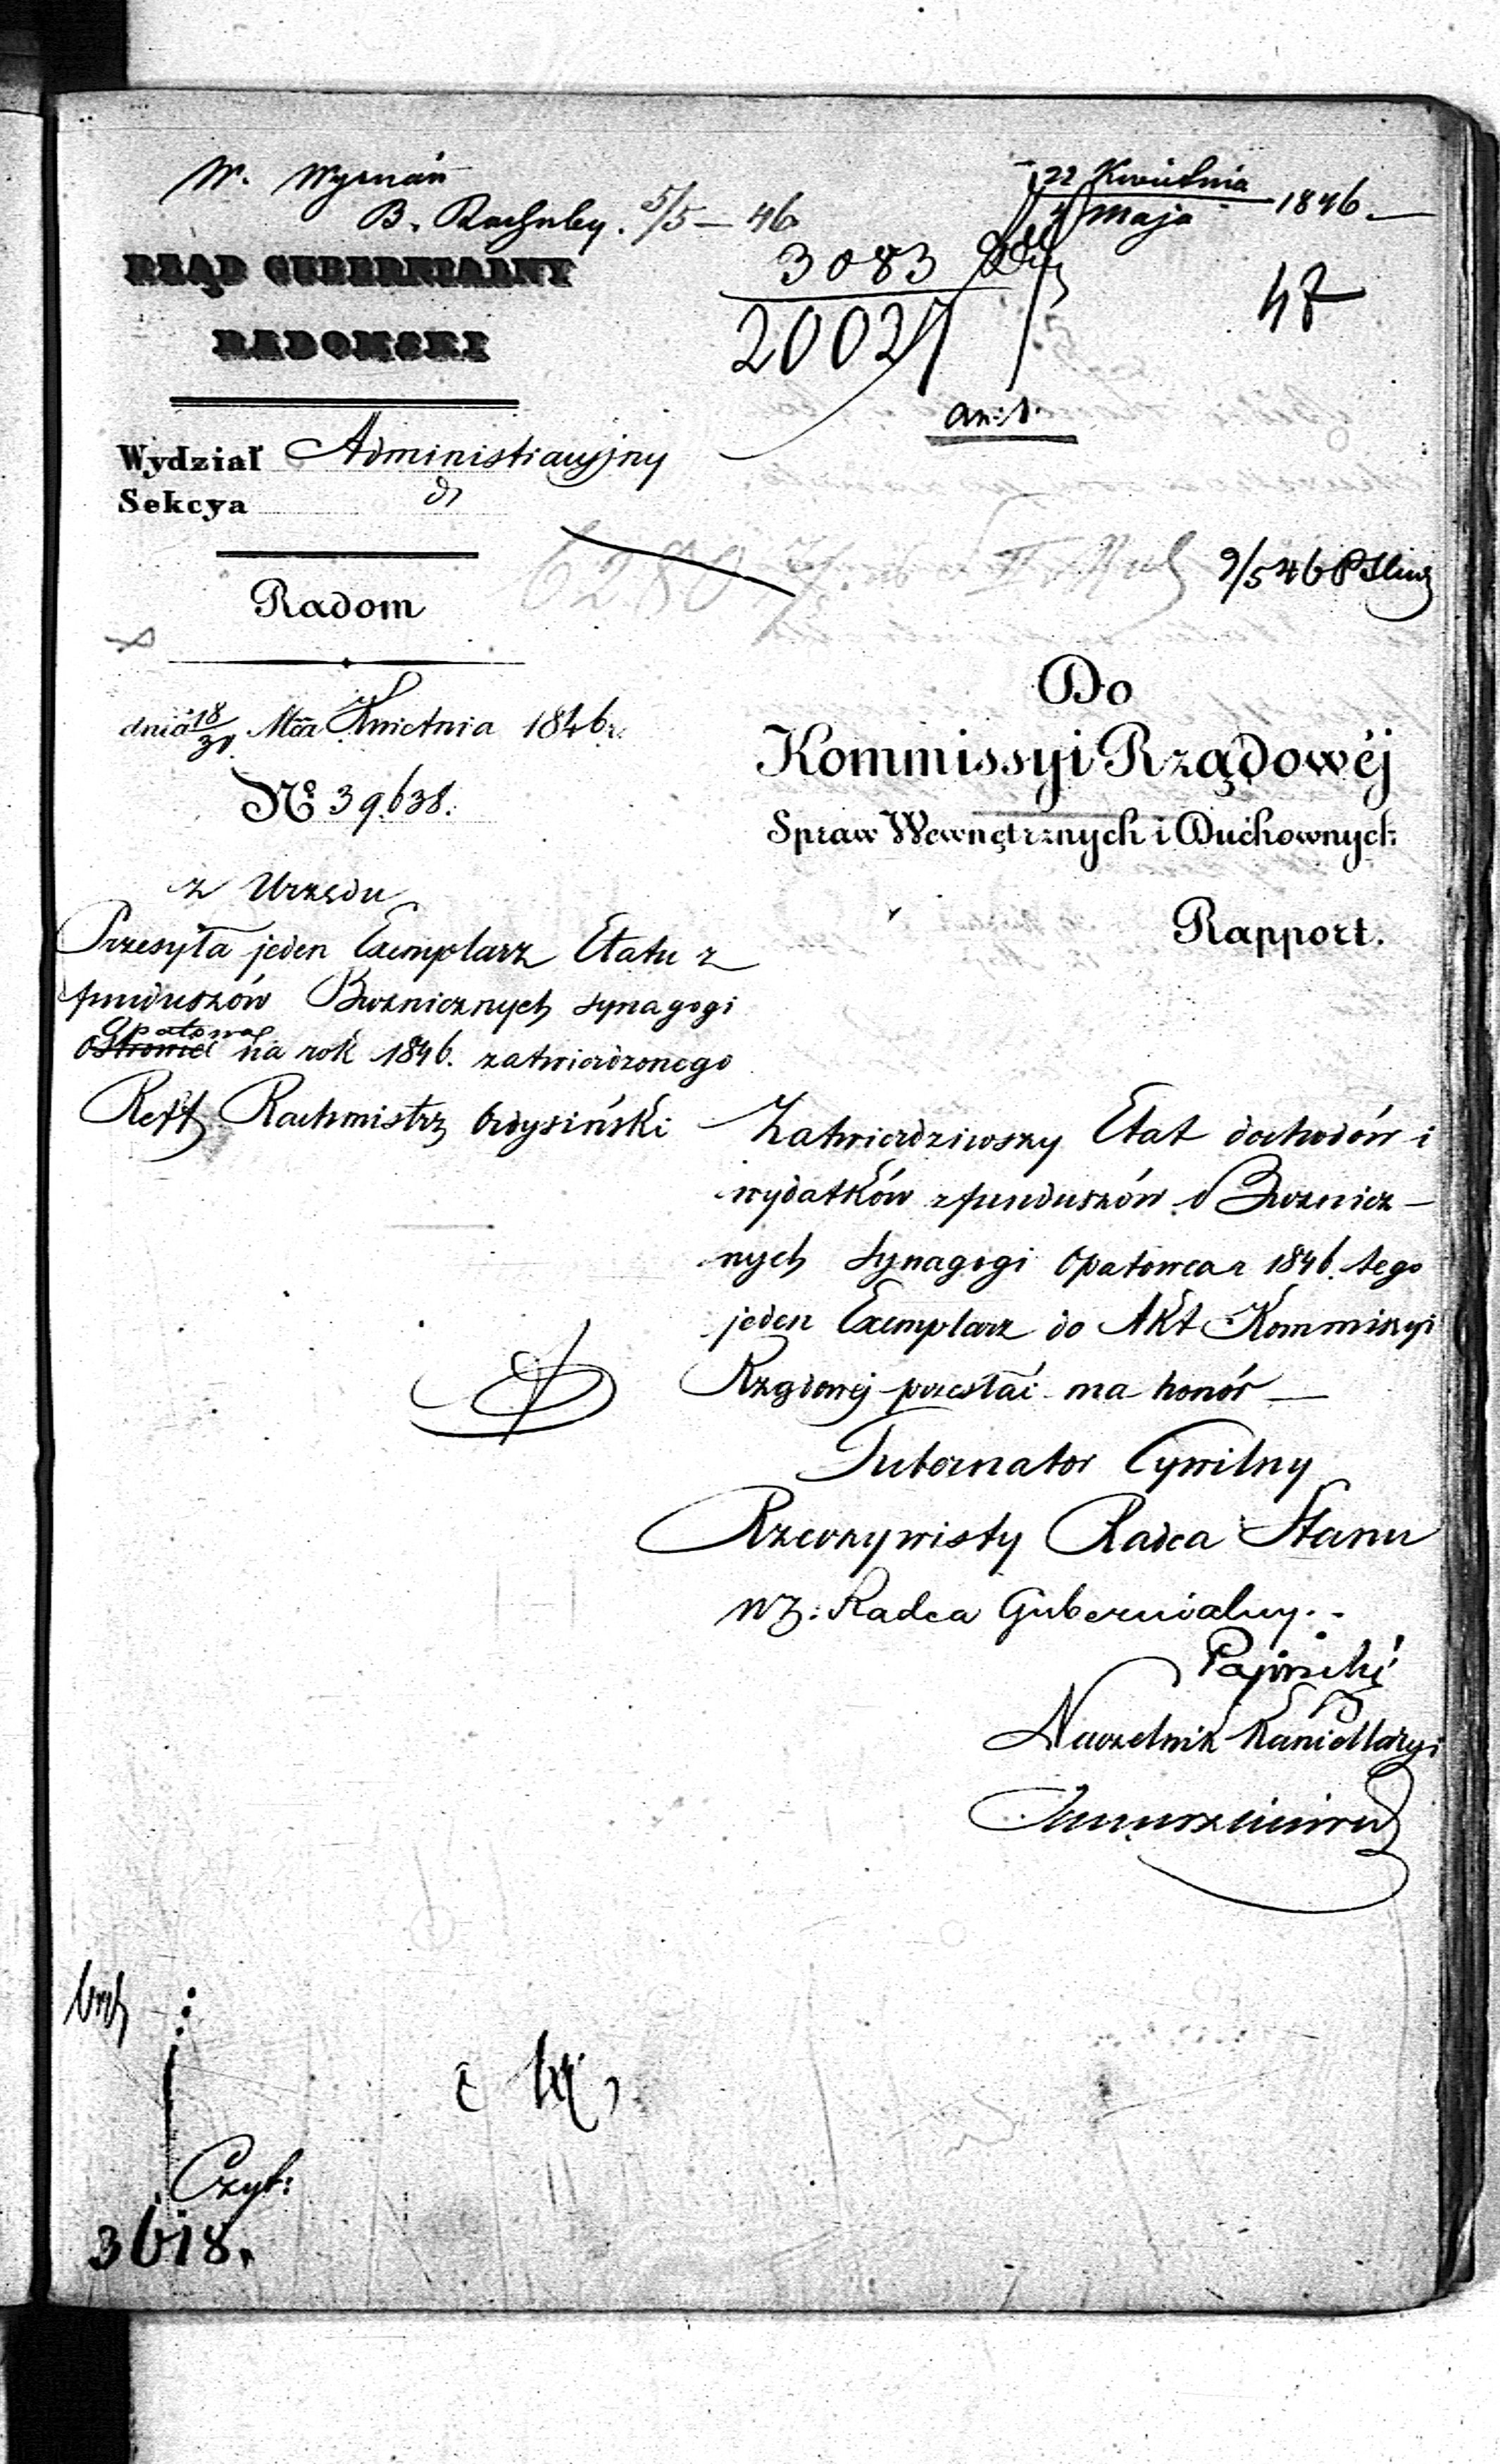 W. Wyznań
B. Rachuby. 5/5 – 46
22 Kwietnia
Maja 1846 –
3083
20027
47
an: 1.
RZĄD GUBERNIALNY
RADOMSKI
Wydział Administracyjny
Sekcya
9/5 46
Radom
dnia 18/30 Mca Kwietnia 1846 r.
No 39638.
Do
Kommissyi Rządowéj
Spraw Wewnętrznych i Duchownych
Rapport.
z Urzędu
Przesyła jeden Exemplarz Etatu z
funduszów Bużnicznych synagogi
Opatowiec
Ostrowiec na rok 1846. zatwierdzonego
Reft Rachmistrz
Zatwierdziwszy Etat dochodów i
wydatków z funduszów Bużnicz-
nych Synagogi Opatowca r. 1846. tego
jeden Exemplarz do Akt Kommissyi
Rządowéj przesłać ma honór —
Gubernator Cywilny
Rzeczywisty Radca Stanu
wz: Radca Gubernialny.
Naczelnik Kancellaryi
Czyt:
3618.